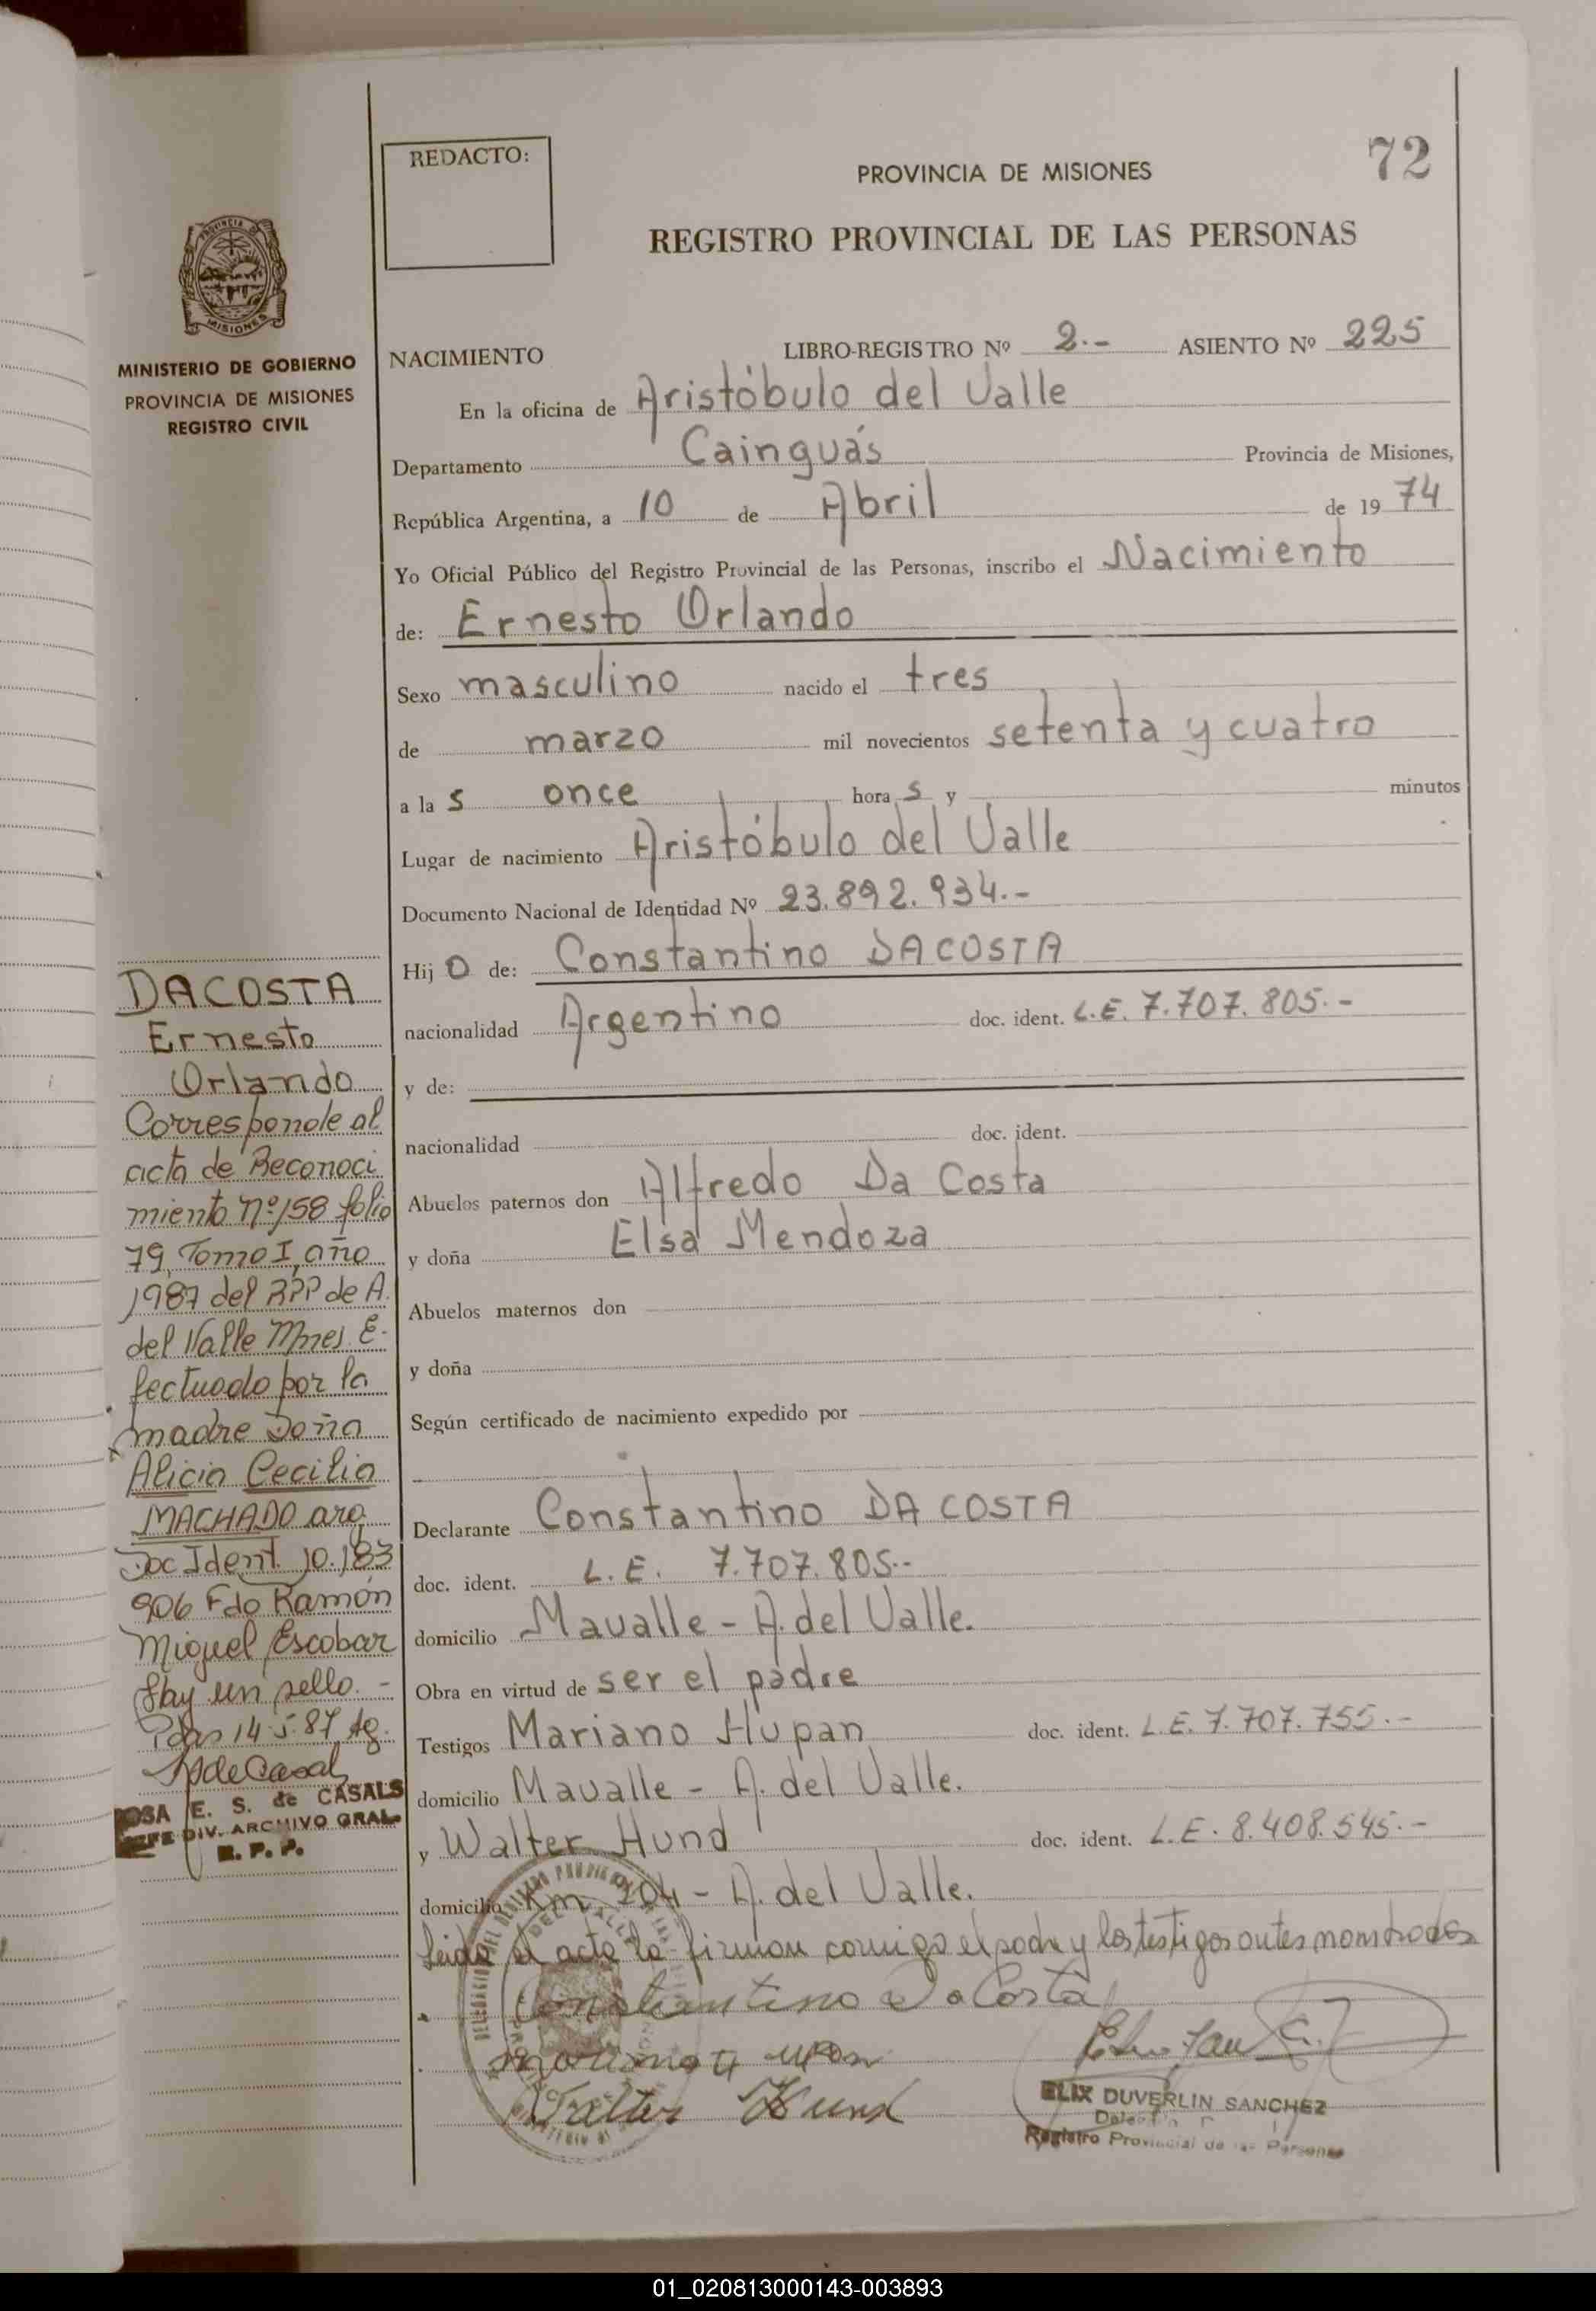 REDACTO:
PROVINCIA DE MISIONES
72
REGISTRO PROVINCIAL DE LAS PERSONAS
PROVINCIA DE
MISIONES
MINISTERIO DE GOBIERNO
PROVINCIA DE MISIONES
REGISTRO CIVIL
NACIMIENTO LIBRO-REGISTRO Nº 2.- ASIENTO Nº 225
En la oficina de Aristóbulo del Valle
Departamento Cainguás Provincia de Misiones,
República Argentina, a 10 de Abril de 1974
Yo Oficial Público del Registro Provincial de las Personas, inscribo el Nacimiento
de: Ernesto Orlando
Sexo masculino nacido el tres
de marzo mil novecientos setenta y cuatro
a las once horas y minutos
Lugar de nacimiento Aristóbulo del Valle
Documento Nacional de Identidad Nº 23.892.934.-
Hijo de: Constantino DACOSTA
nacionalidad Argentino doc. ident. L.E. 7.707.805.-
y de:
nacionalidad doc. ident.
Abuelos paternos don Alfredo Da Costa
y doña Elsa Mendoza
Abuelos maternos don
y doña
Según certificado de nacimiento expedido por
Declarante Constantino DA COSTA
doc. ident. L.E. 7.707.805.-
domicilio Mavalle - A. del Valle.
Obra en virtud de ser el padre
Testigos Mariano Hupan doc. ident. L.E. 7.707.755.-
domicilio Mavalle - A. del Valle.
y Walter Hund doc. ident. L.E. 8.408.545.-
domicilio Km 204 - A. del Valle.
Leida el acta la firman conmigo el padre y los testigos antes nombrados
Constantino Da Costa
Walter Hund
ELIX DUVERLIN SANCHEZ
Registro Provincial de las Personas
DACOSTA
Ernesto
Orlando
Corresponde al
acta de Reconoci
miento nº 158 folio
79, Tomo I, año
1987 del RPP de A.
del Valle Mnes. E-
fectuado por la
madre Doña
Alicia Cecilia
MACHADO arg
Doc Ident. 10.183
906 Fdo Ramón
Miguel Escobar
Hay un sello.-
Pdas 14.5.87 Ag.
ROSA E. S. de CASALS
JEFE DIV. ARCHIVO GRAL.
R. P. P.
01_020813000143-003893